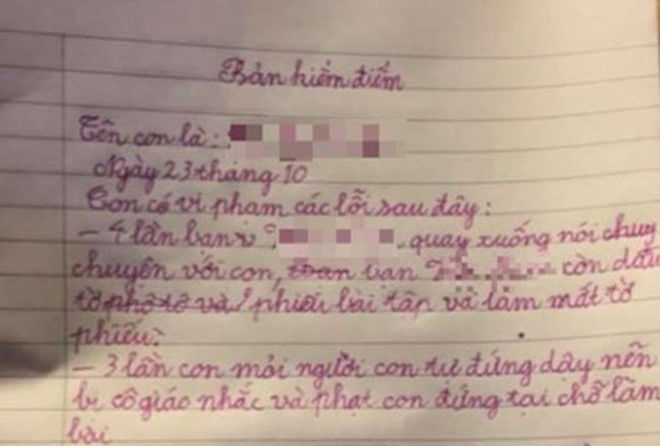 Bản kiểm điểm
Tên con là:
Ngày 23 tháng 10
Con có vi phạm các lỗi sau đây:
- 4 lần bạn quay xuống nói chuy
chuyên với con, bạn còn dấu
tờ phô tô và phiếu bài tập và làm mất tờ
phiếu.
- 3 lần con mỏi người con tư đứng dây nên
bi cô giáo nhắc và phat con đứng tại chỗ làm
bài